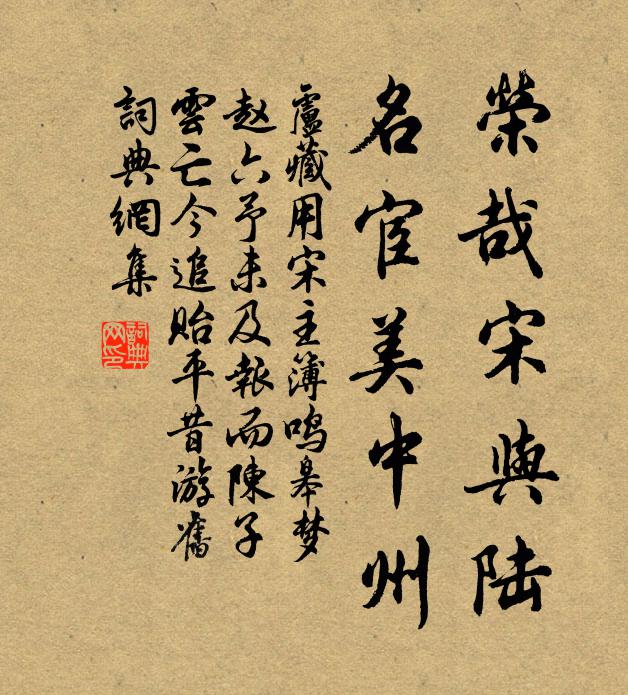 榮哉宋與陆
名宦美中州
盧藏用宋主簿鸣皋梦
赵六予未及報而陳子
雲亡今追貽平昔游舊
詞典網集
詞典
网印